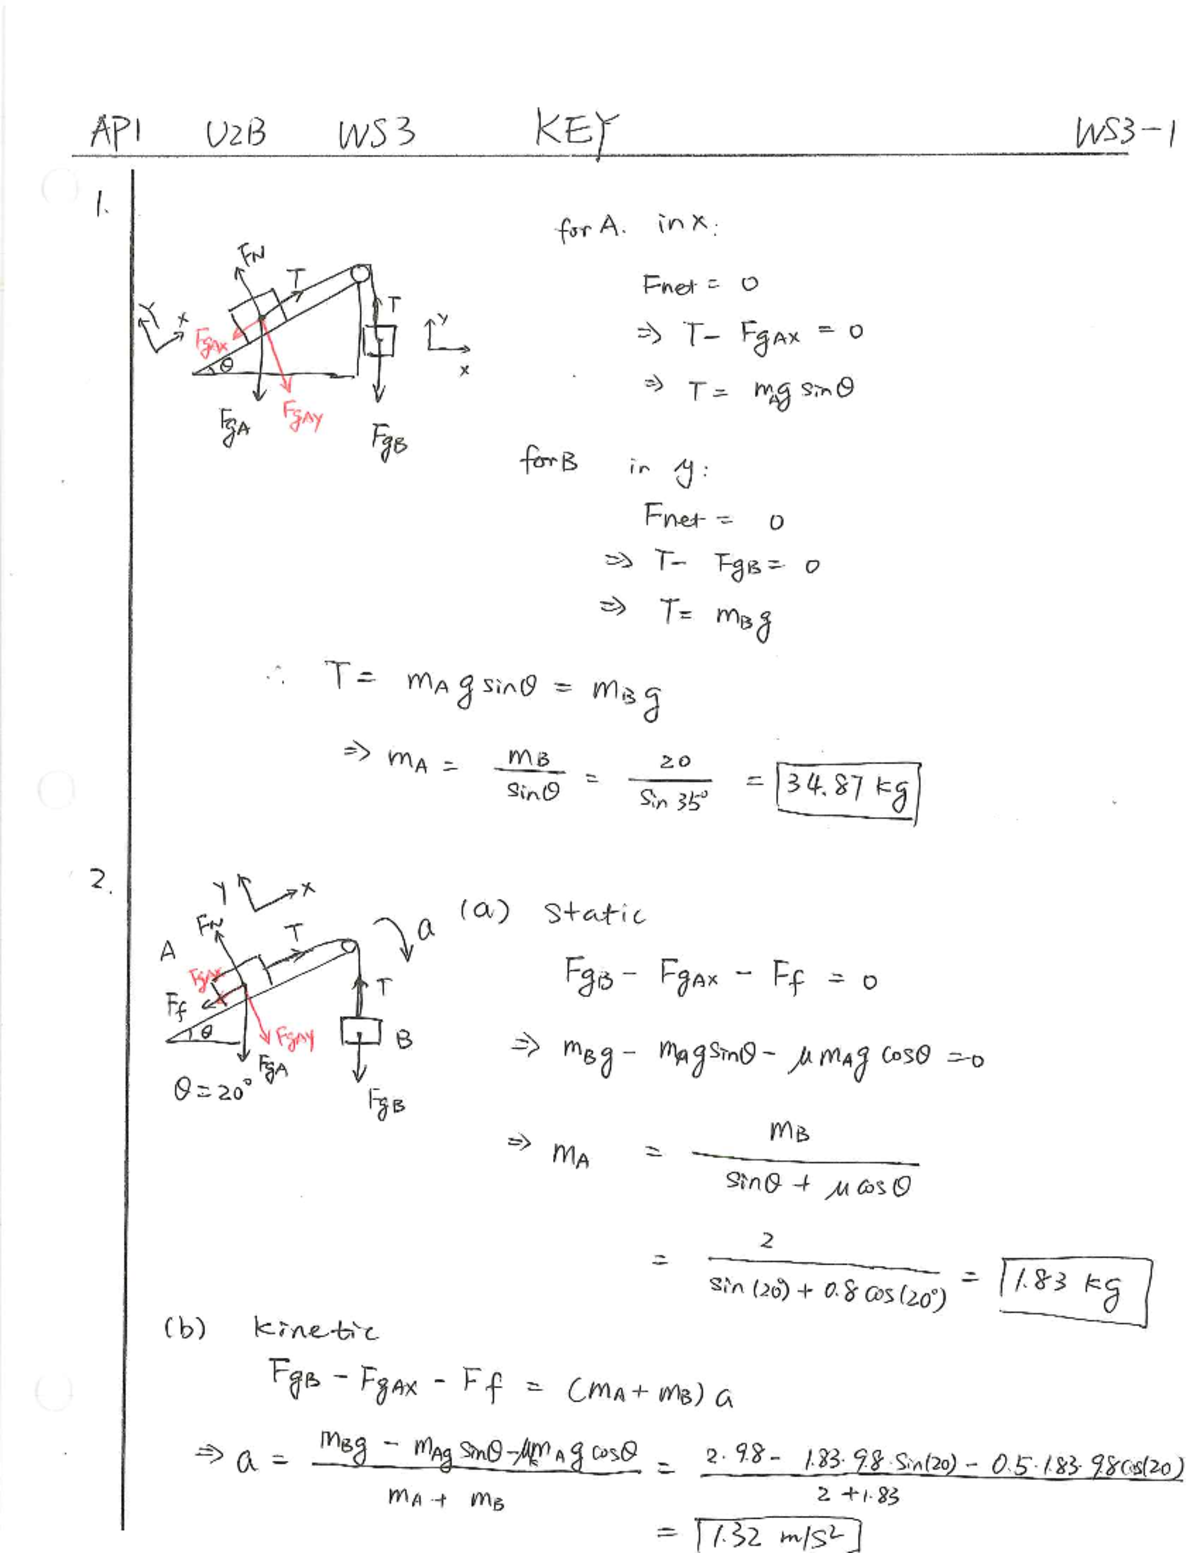 API U2B WS3 KEY WS3-1
1.
for A. in x:
Fnet = 0
⇒ T - FgAx = 0
⇒ T = mAg sinθ
FN
T
T
Y
x
Y
x
FgAx
θ
FgA
FgAy
FgB
for B in y:
Fnet = 0
⇒ T - FgB = 0
⇒ T = mBg
∴ T = mAg sinθ = mBg
⇒ mA = mB / sinθ = 20 / sin 35° = 34.87 kg
2.
Y
x
FN
A
T
a
FgAx
Ff
T
θ
FgAy
B
FgA
θ = 20°
FgB
(a) static
FgB - FgAx - Ff = 0
⇒ mBg - mAg sinθ - μ mAg cosθ = 0
⇒ mA = mB / sinθ + μ cosθ
= 2 / sin(20°) + 0.8 cos(20°) = 1.83 kg
(b) kinetic
FgB - FgAx - Ff = (mA + mB) a
⇒ a = mBg - mAg sinθ - μk mAg cosθ / mA + mB = 2·9.8 - 1.83·9.8·sin(20) - 0.5·1.83·9.8 cos(20) / 2 + 1.83
= 1.32 m/s²